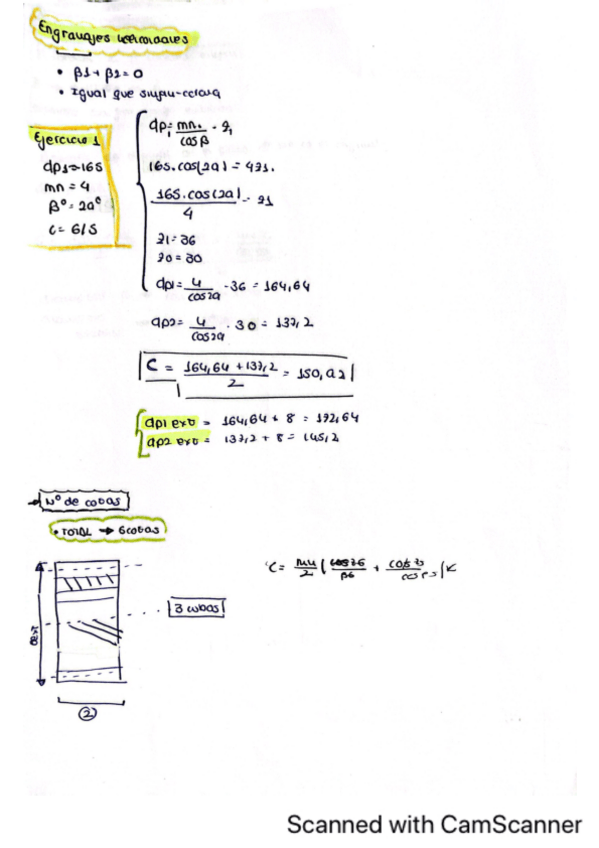 Engranajes helicoidales
• β1 + β2 = 0
• Igual que
Ejercicio 1
dp1 = 165
mn = 4
β° = 29°
i = 6/5
dp1 = mn / cos β · z1
165 · cos(29) = 4z1.
165 · cos(29) / 4 = z1
z1 = 36
z0 = 30
dp1 = 4 / cos 29 · 36 = 164,64
dp2 = 4 / cos 29 · 30 = 137,2
C = 164,64 + 137,2 / 2 = 150,92
dp1 ext = 164,64 + 8 = 172,64
dp2 ext = 137,2 + 8 = 145,2
→ Nº de cotas
• TOTAL → 6 cotas
3 cotas
②
Scanned with CamScanner